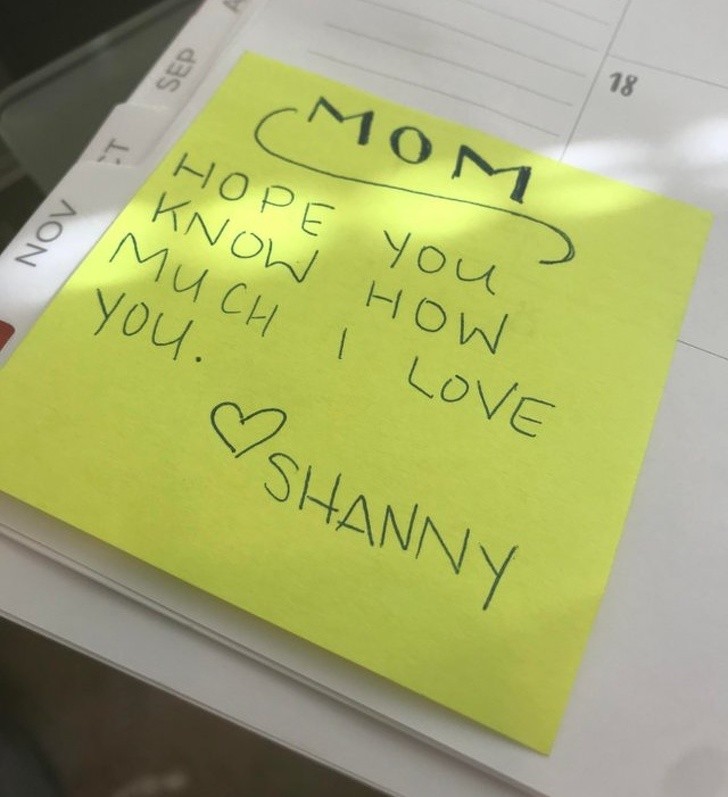 A
SEP
CT
NOV
18
MOM
HOPE YOU
KNOW HOW
MUCH I LOVE
YOU.
♡SHANNY